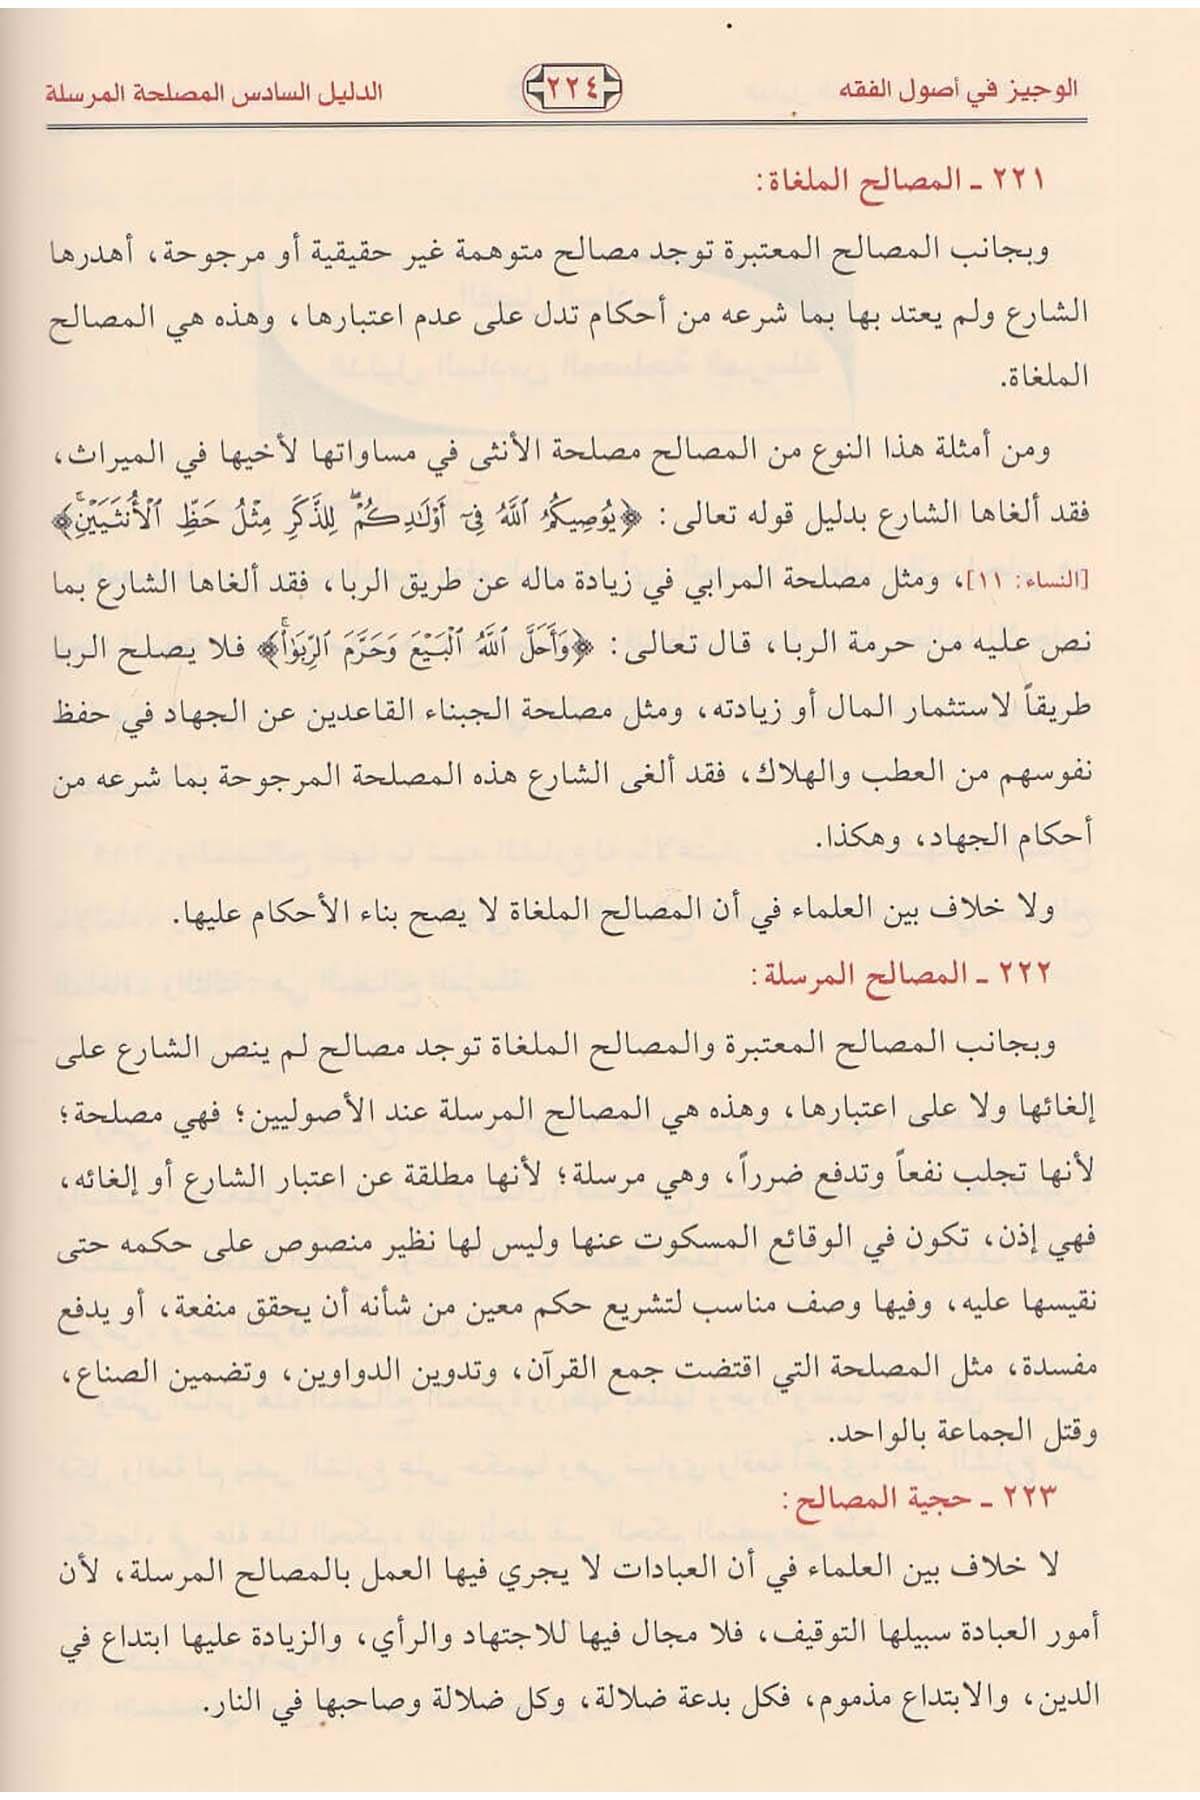 الوجيز في أصول الفقه
٢٢٤
الدليل السادس المصلحة المرسلة
٢٢١ ـ المصالح الملغاة:
وبجانب المصالح المعتبرة توجد مصالح متوهمة غير حقيقية أو مرجوحة، أهدرها
الشارع ولم يعتد بها بما شرعه من أحكام تدل على عدم اعتبارها، وهذه هي المصالح
الملغاة.
ومن أمثلة هذا النوع من المصالح مصلحة الأنثى في مساواتها لأخيها في الميراث،
فقد ألغاها الشارع بدليل قوله تعالى: ﴿يُوصِيكُمُ ٱللَّهُ فِىٓ أَوْلَٰدِكُمْ ۖ لِلذَّكَرِ مِثْلُ حَظِّ ٱلْأُنثَيَيْنِ ۚ﴾
[النساء: ١١]، ومثل مصلحة المرابي في زيادة ماله عن طريق الربا، فقد ألغاها الشارع بما
نص عليه من حرمة الربا، قال تعالى: ﴿وَأَحَلَّ ٱللَّهُ ٱلْبَيْعَ وَحَرَّمَ ٱلرِّبَوٰا۟ ۚ﴾ فلا يصلح الربا
طريقاً لاستثمار المال أو زيادته، ومثل مصلحة الجبناء القاعدين عن الجهاد في حفظ
نفوسهم من العطب والهلاك، فقد ألغى الشارع هذه المصلحة المرجوحة بما شرعه من
أحكام الجهاد، وهكذا.
ولا خلاف بين العلماء في أن المصالح الملغاة لا يصح بناء الأحكام عليها.
٢٢٢ ـ المصالح المرسلة:
وبجانب المصالح المعتبرة والمصالح الملغاة توجد مصالح لم ينص الشارع على
إلغائها ولا على اعتبارها، وهذه هي المصالح المرسلة عند الأصوليين؛ فهي مصلحة؛
لأنها تجلب نفعاً وتدفع ضرراً، وهي مرسلة؛ لأنها مطلقة عن اعتبار الشارع أو إلغائه،
فهي إذن، تكون في الوقائع المسكوت عنها وليس لها نظير منصوص على حكمه حتى
نقيسها عليه، وفيها وصف مناسب لتشريع حكم معين من شأنه أن يحقق منفعة، أو يدفع
مفسدة، مثل المصلحة التي اقتضت جمع القرآن، وتدوين الدواوين، وتضمين الصناع،
وقتل الجماعة بالواحد.
٢٢٣ ـ حجية المصالح:
لا خلاف بين العلماء في أن العبادات لا يجري فيها العمل بالمصالح المرسلة، لأن
أمور العبادة سبيلها التوقيف، فلا مجال فيها للاجتهاد والرأي، والزيادة عليها ابتداع في
الدين، والابتداع مذموم، فكل بدعة ضلالة، وكل ضلالة وصاحبها في النار.